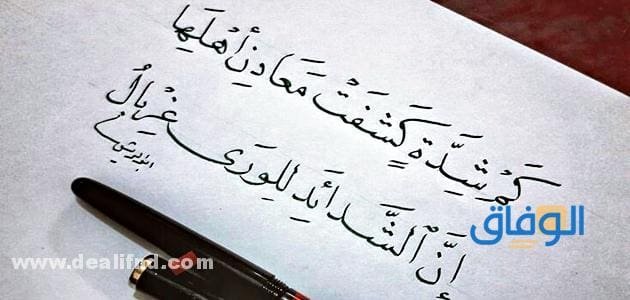 كَمْ شِدَّةٍ كَشَفَتْ مَعَادِنَ أَهْلِهَا
إِنَّ ٱلشَّدَائِدَ لِلْوَرَى غِرْبَالُ
الوفاق
www.dealifnd.com